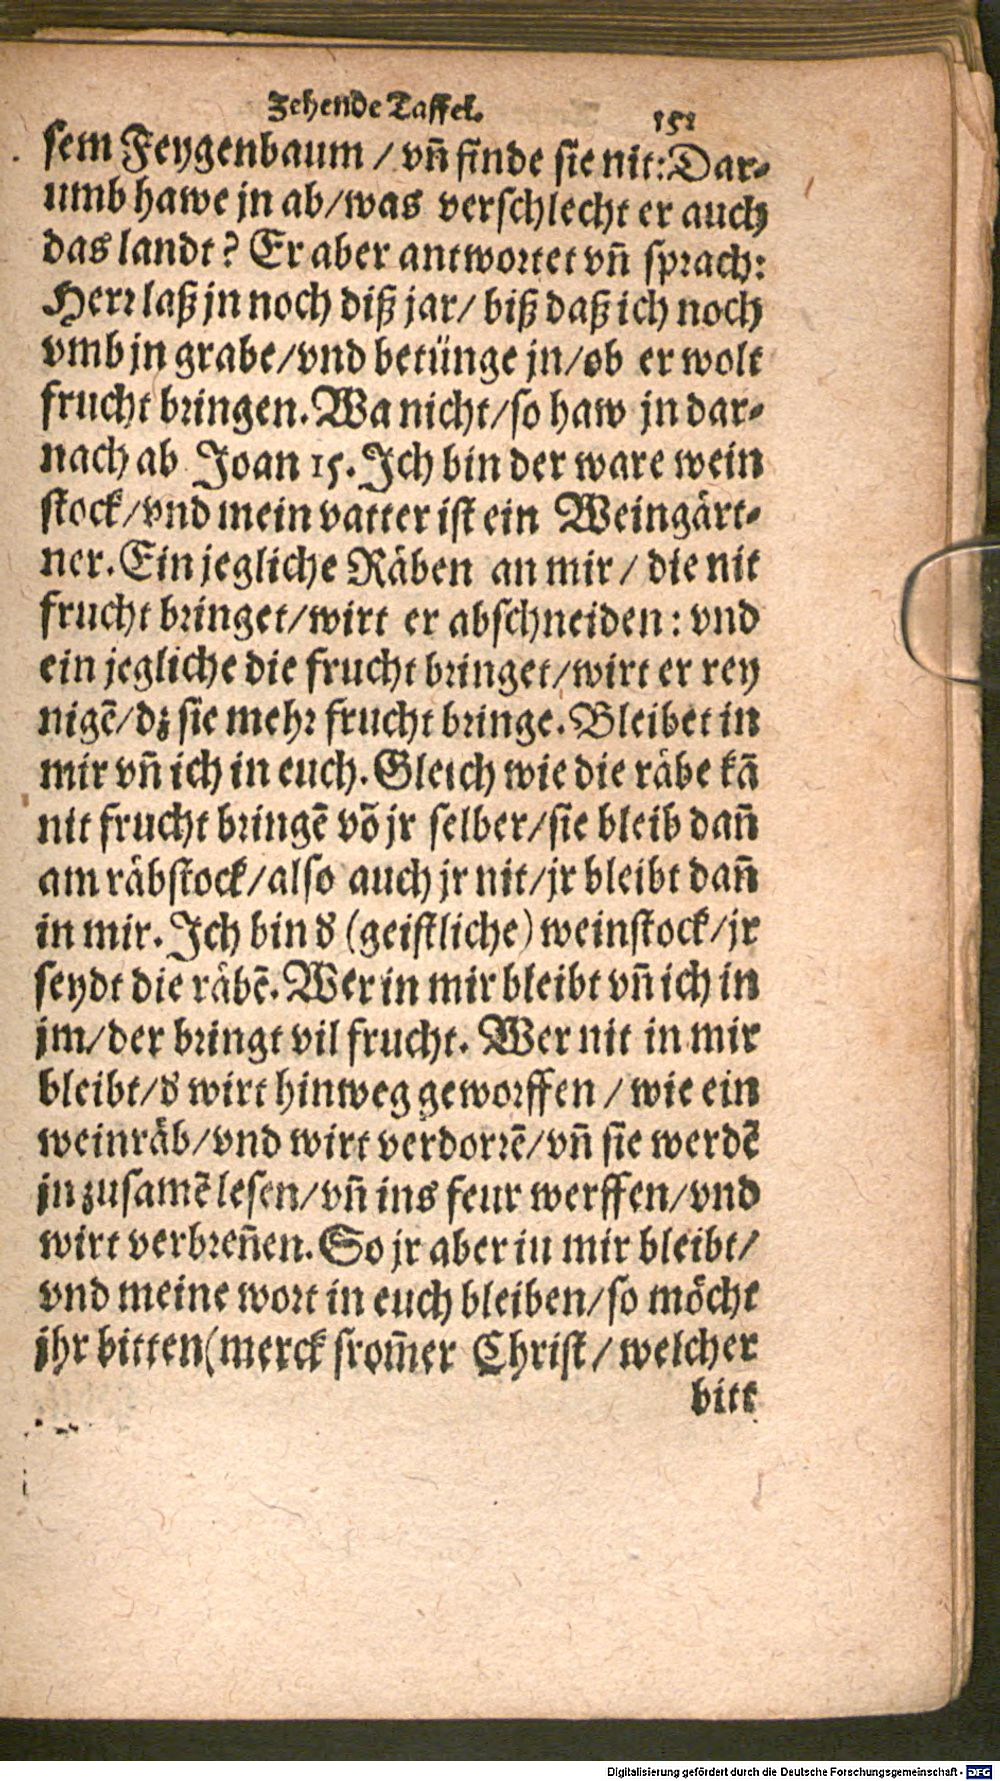 Zehende Taffel. 151
sem Feygenbaum / vñ finde sie nit: Dar-
umb hawe jn ab/was verschlecht er auch
das landt? Er aber antwortet vñ sprach:
Herr laß jn noch diß jar/ biß daß ich noch
vmb jn grabe/vnd betünge jn/ob er wolt
frucht bringen. Wa nicht/so haw jn dar-
nach ab Joan 15. Ich bin der ware wein
stock/vnd mein vatter ist ein Weingärt-
ner. Ein jegliche Räben an mir / die nit
frucht bringet/wirt er abschneiden: vnd
ein jegliche die frucht bringet/wirt er rey
nigē/dz sie mehr frucht bringe. Bleibet in
mir vñ ich in euch. Gleich wie die räbe kā
nit frucht bringē võ jr selber/sie bleib dañ
am räbstock/also auch jr nit/jr bleibt dañ
in mir. Ich bin d̕ (geistliche) weinstock/jr
seydt die räbē. Wer in mir bleibt vñ ich in
jm/der bringt vil frucht. Wer nit in mir
bleibt/d̕ wirt hinweg geworffen / wie ein
weinräb/vnd wirt verdorrē/vñ sie werdē
jn zusamē lesen/vñ ins feur werffen/vnd
wirt verbreñen. So jr aber in mir bleibt/
vnd meine wort in euch bleiben/so möcht
jhr bitten(merck srom̄er Christ / welcher
bitt
Digitalisierung gefördert durch die Deutsche Forschungsgemeinschaft - DFG